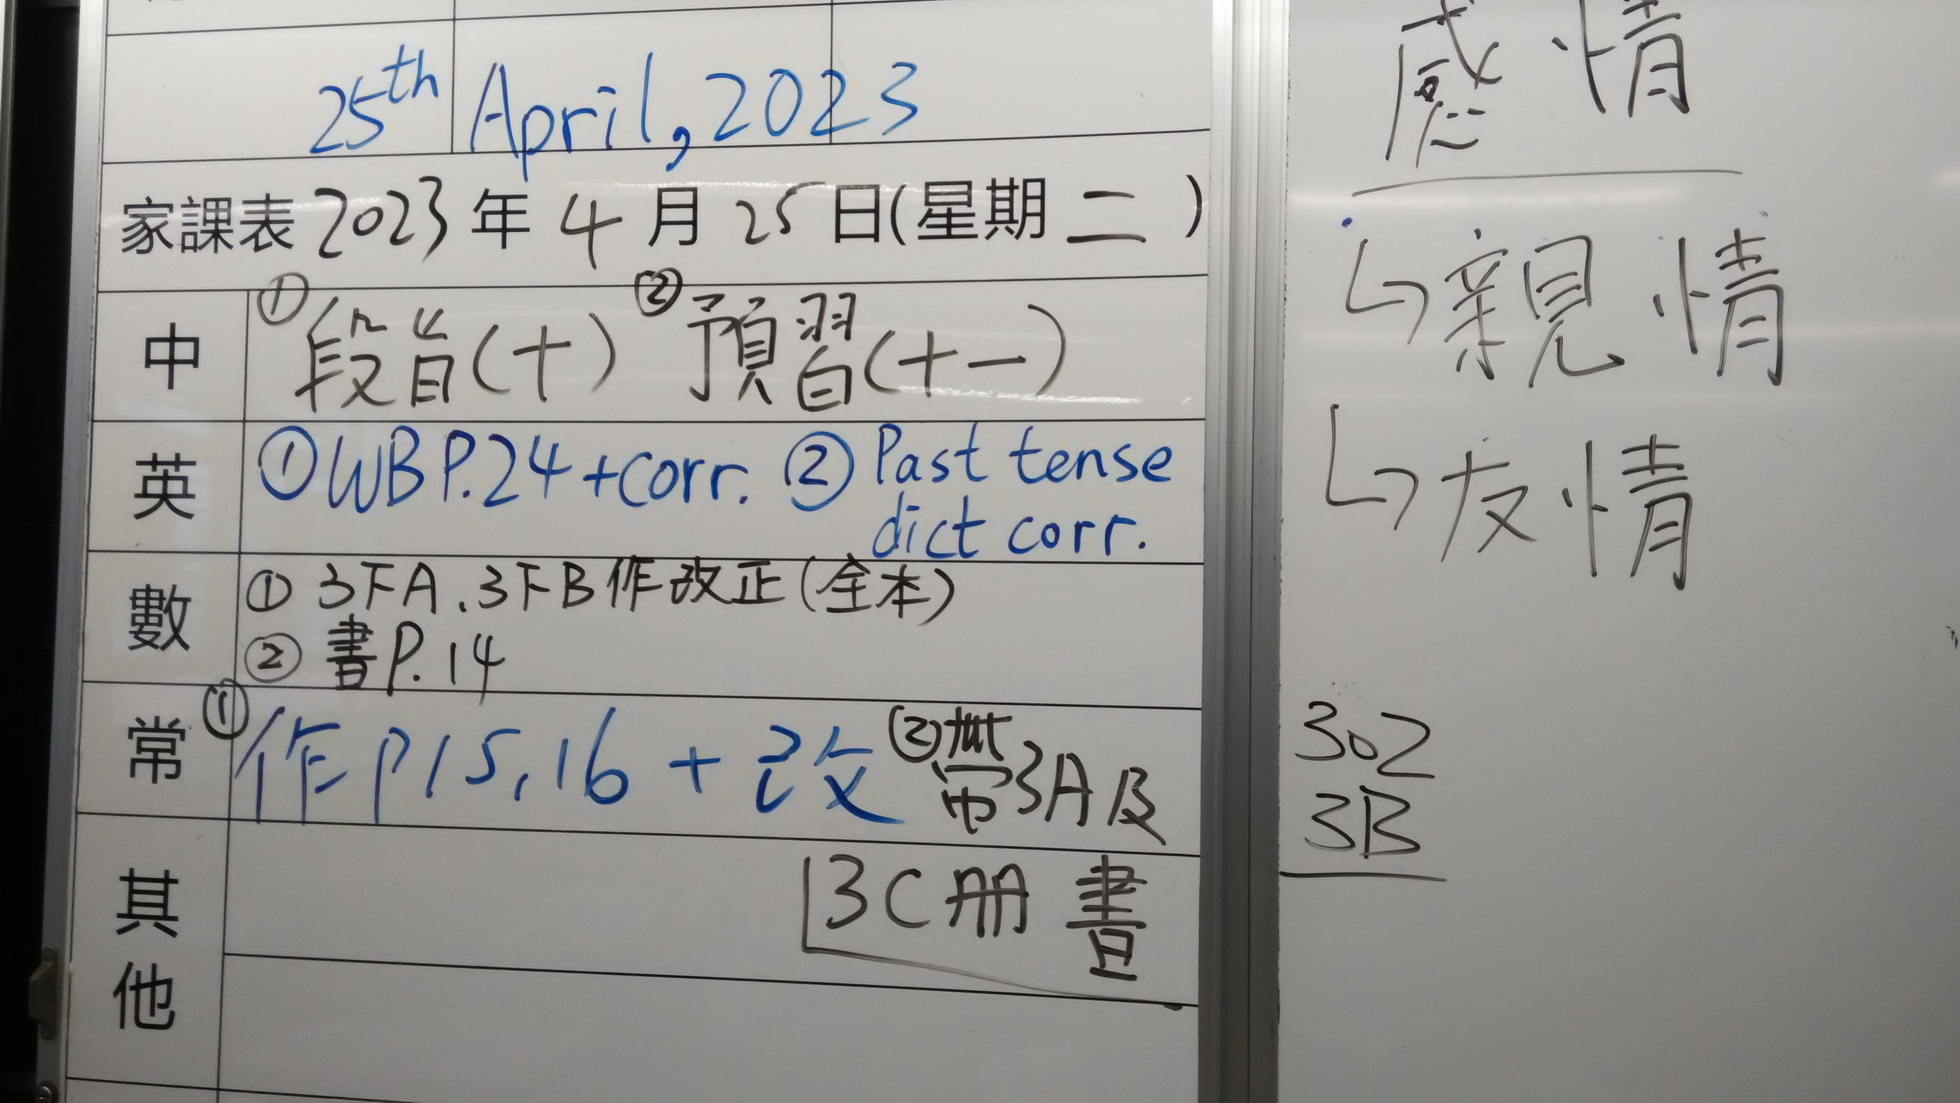 25th April, 2023
家課表 2023 年 4 月 25 日(星期 二 )
中 ①段旨(十) ②預習(十一)
英 ①WB P.24 + corr. ② Past tense
dict corr.
數 ① 3下A、3下B作改正(全本)
② 書P.14
常 ①作 P15,16 + 改 ②帶3A及
3C冊書
其他
感情
↳親情
↳友情
302
3B